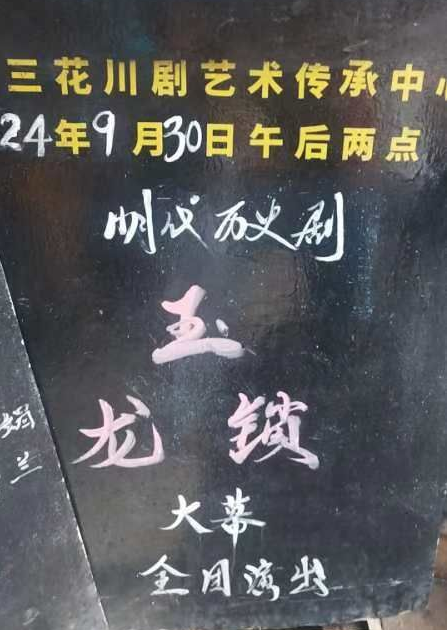 三花川剧艺术传承中心
24年9月30日午后两点
明代历史剧
玉
龙锁
大幕
全团演出
兰